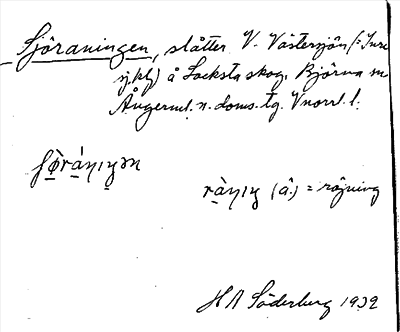 Sjöraningen, slåtter V. Västersjön (=Inre
sj. kh) å Locksta skog. Björna sn
Ångerml. n. doms. tg. Vnorrl. l.
rànıŋ (â) = röjning
H A Söderberg 1932